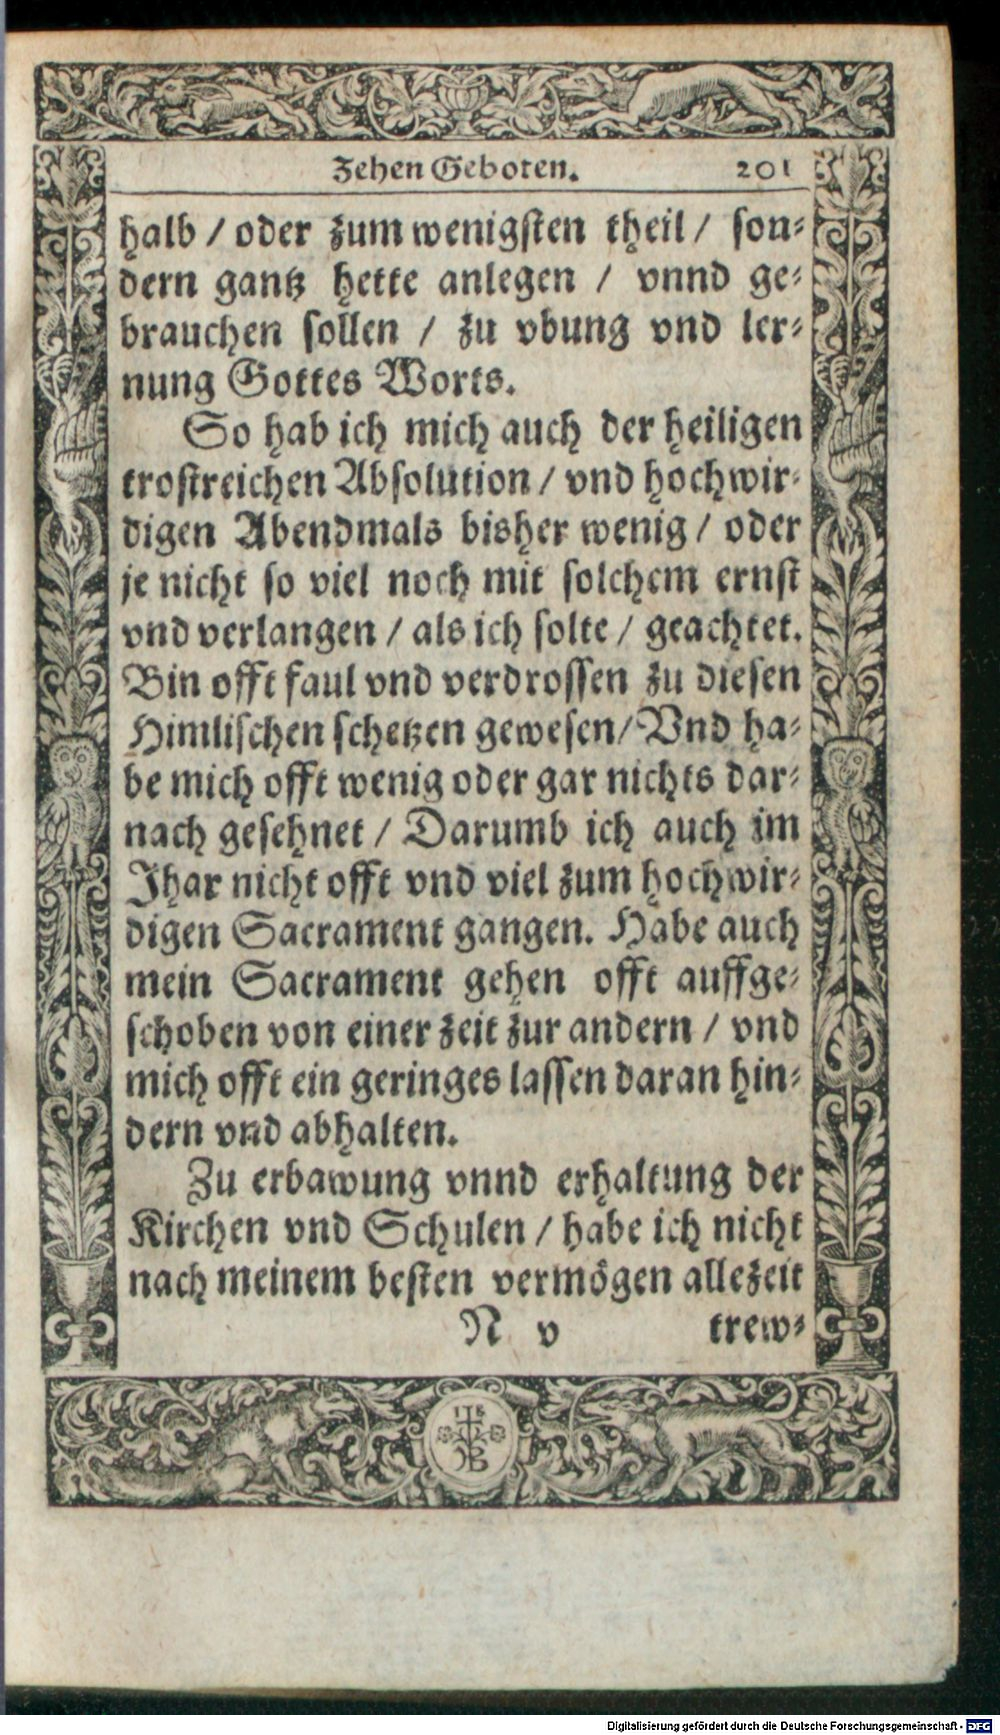 Zehen Geboten. 201
halb / oder zum wenigsten theil / son⸗
dern gantz hette anlegen / vnnd ge⸗
brauchen sollen / zu vbung vnd ler⸗
nung Gottes Worts.
So hab ich mich auch der heiligen
trostreichen Absolution / vnd hochwir⸗
digen Abendmals bisher wenig / oder
je nicht so viel noch mit solchem ernst
vnd verlangen / als ich solte / geachtet.
Bin offt faul vnd verdrossen zu diesen
Himlischen schetzen gewesen / Vnd ha⸗
be mich offt wenig oder gar nichts dar⸗
nach gesehnet / Darumb ich auch im
Jhar nicht offt vnd viel zum hochwir⸗
digen Sacrament gangen. Habe auch
mein Sacrament gehen offt auffge⸗
schoben von einer zeit zur andern / vnd
mich offt ein geringes lassen daran hin⸗
dern vnd abhalten.
Zu erbawung vnnd erhaltung der
Kirchen vnd Schulen / habe ich nicht
nach meinem besten vermögen allezeit
N v trew⸗
Digitalisierung gefördert durch die Deutsche Forschungsgemeinschaft - DFG